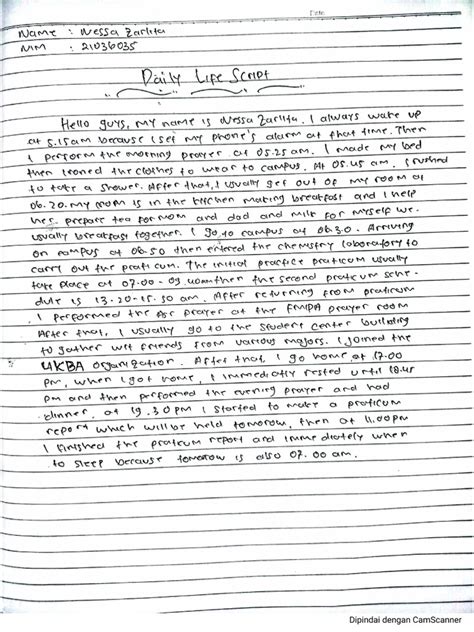 Date
Name : Nessa Zarlita
NIM : 21036035
Daily Life Script
Hello guys, my name is Nessa Zarlita. I always wake up
at 5.15 am because I set my phone's alarm at that time. Then
I perform the morning prayer at 05.25 am. I made my bed
then Ironed the clothes to wear to campus. At 05.45 am. I rushed
to take a shower. After that, I usually get out of my room at
06.20. My mom is in the kitchen making breakfast and I help
her prepare tea for mom and dad and milk for myself we
usually breakfast together. I go to campus at 06.30. Arriving
on campus at 06.50 then entered the chemistry laboratory to
carry out the praticum. The initial practice praticum usually
take place at 07.00 - 09. then the second praticum sche-
dule is 13.20-15.50 am. After returning from praticum
I performed the Asr prayer at the FMIPA prayer room
After that, I usually go to the student center building
to gather wit friends from various majors. I joined the
UKBA organization. After that, I go home at 17.00
pm, when I got home, I immediatly rested until 18.45
pm and then performed the evening prayer and had
dinner, at 19.30 pm I started to make a praticum
report which will be held tomorrow, then at 11.00 pm
I finished the praticum report and immediately when
to sleep because tomorrow is also 07.00 am.
Dipindai dengan CamScanner